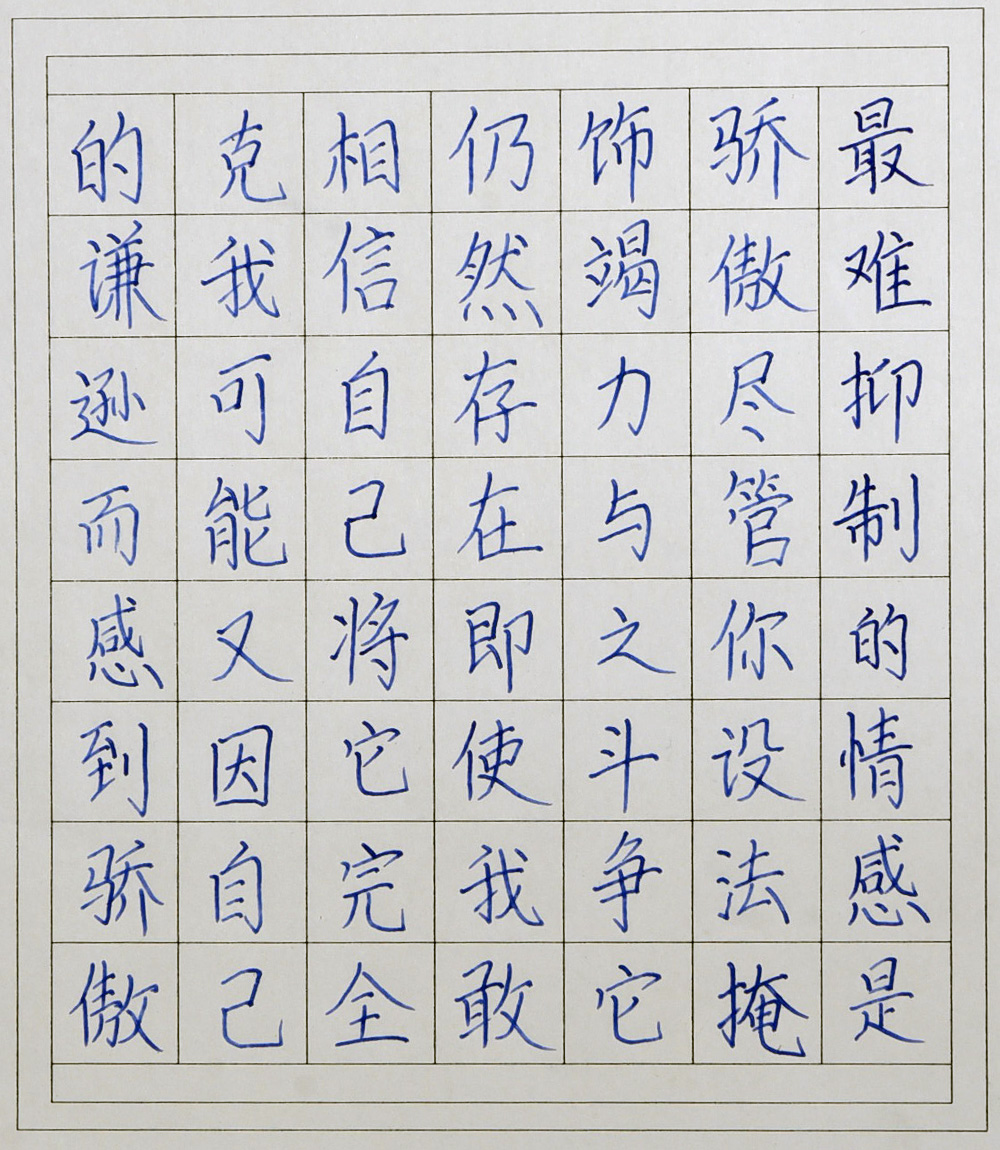 最难抑制的情感是
骄傲尽管你设法掩
饰竭力与之斗争它
仍然存在即使我敢
相信自己将它完全
克我可能又因自己
的谦逊而感到骄傲